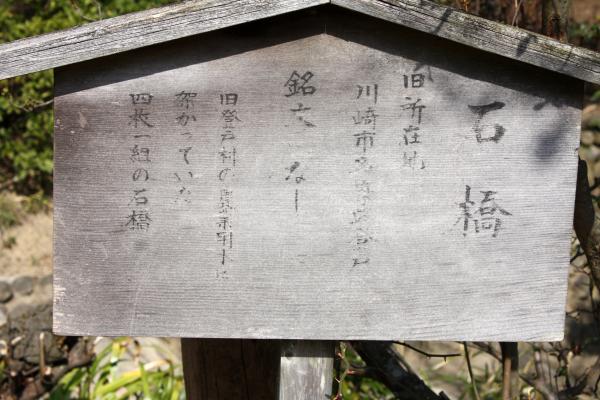 石橋
旧所在地
川崎市多摩区登戸
銘文 なし
旧登戸村の農業用水に
架かっていた
四枚一組の石橋